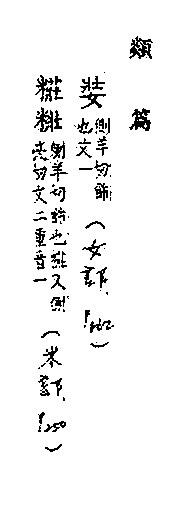 類篇
娤側羊切飾
也文一(女部,P.462)
糚粧側羊切飾也糚又側
亮切文二重音一(米部,P.250)